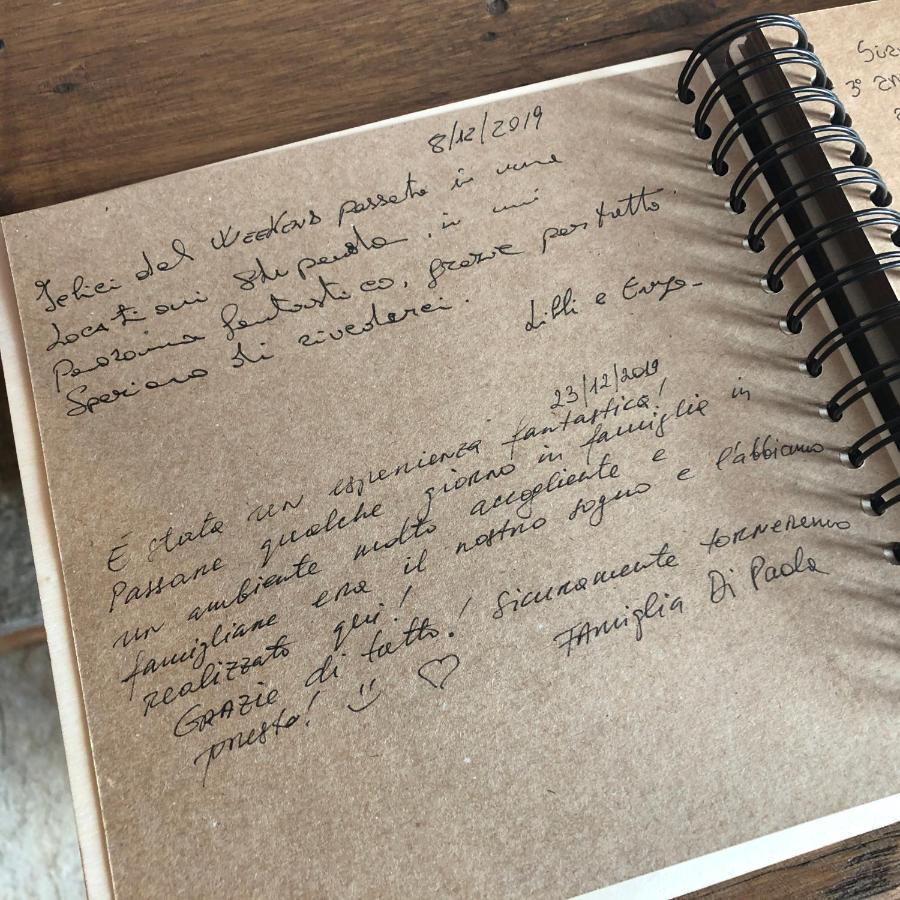 8/12/2019
Felici del WEEKEND passato in una
Location stupenda, in un
Panorama fantastico, grazie per tutto.
Speriamo di rivederci.
Lilli e Enzo-
23/12/2019
È stata un'esperienza fantastica!
Passare qualche giorno in famiglia in
un ambiente molto accogliente e
famigliare era il nostro sogno e l'abbiamo
realizzato qui!
GRAZIE di tutto! Sicuramente torneremo
presto! 
FAmiglia Di Paola
3°